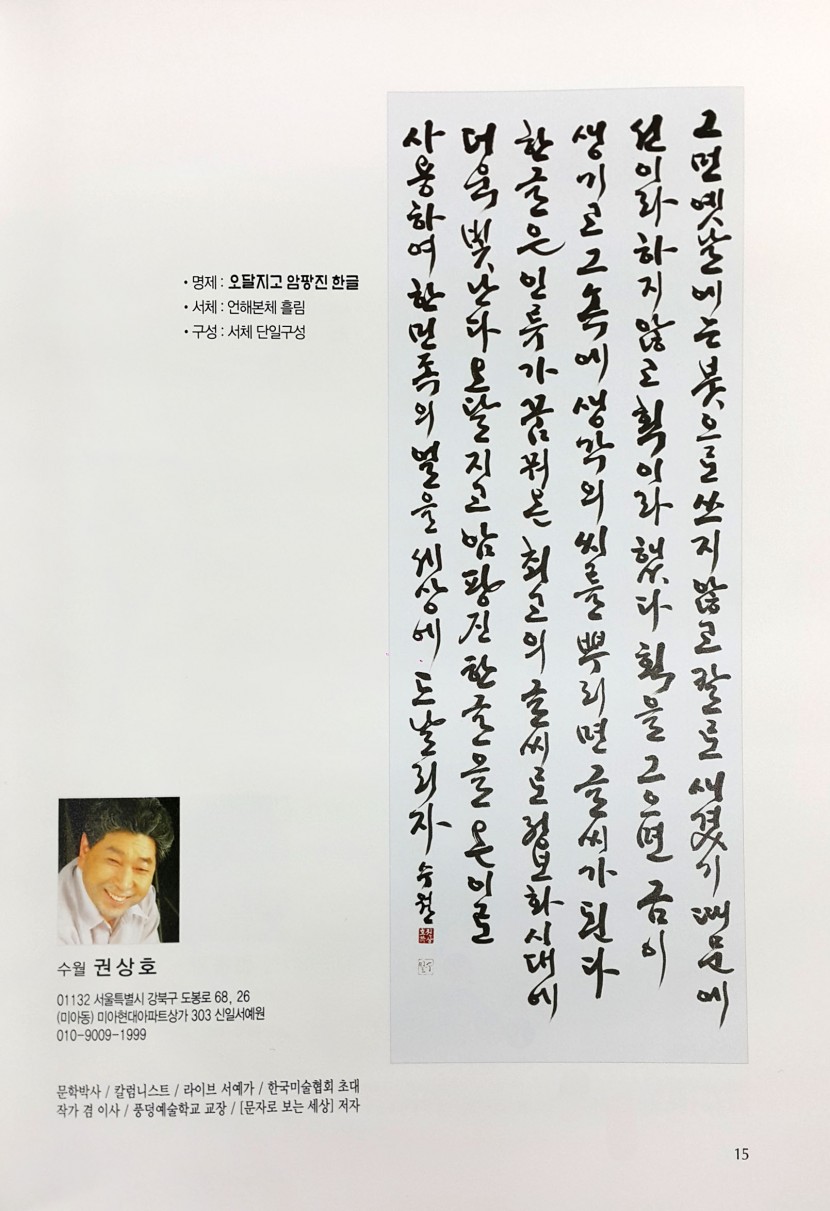 • 명제 : 오달지고 암팡진 한글
• 서체 : 언해본체 흘림
• 구성 : 서체 단일구성
그 먼 옛날에는 붓으로 쓰지 않고 칼로 새겼기 때문에
선이라 하지 않고 획이라 했다 획을 그으면 금이
생기고 그 속에 생각의 씨를 뿌리면 글씨가 된다
한글은 인류가 꿈꿔온 최고의 글씨로 정보화시대에
더욱 빛난다 오달지고 암팡진 한글을 온이로
사용하여 한민족의 얼을 세상에 드날리자 수월
수월 권상호
01132 서울특별시 강북구 도봉로 68, 26
(미아동) 미아현대아파트상가 303 신일서예원
010-9009-1999
문학박사 / 칼럼니스트 / 라이브 서예가 / 한국미술협회 초대
작가 겸 이사 / 풍덩예술학교 교장 / [문자로 보는 세상] 저자
15